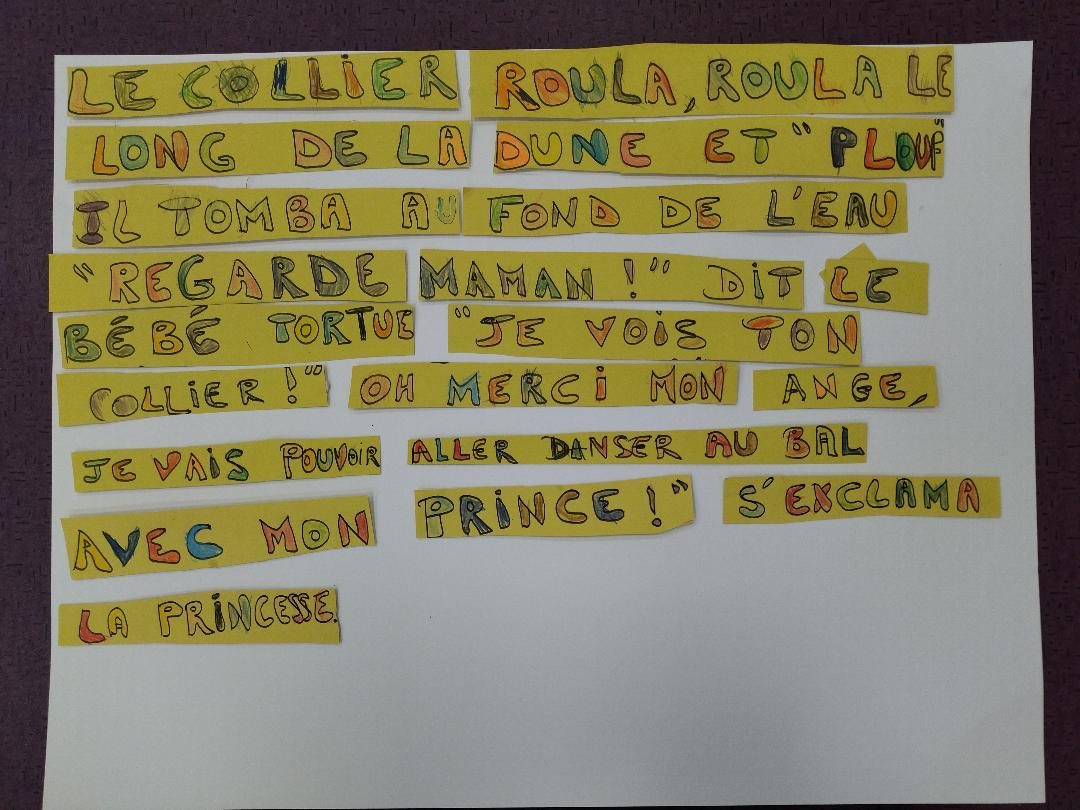 LE COLLIER ROULA, ROULA LE
LONG DE LA DUNE ET "PLOUF"
IL TOMBA AU FOND DE L'EAU
"REGARDE MAMAN !" DIT LE
BÉBÉ TORTUE "JE VOIS TON
COLLIER !" OH MERCI MON ANGE,
JE VAIS POUVOIR ALLER DANSER AU BAL
AVEC MON PRINCE !" S'EXCLAMA
LA PRINCESSE.